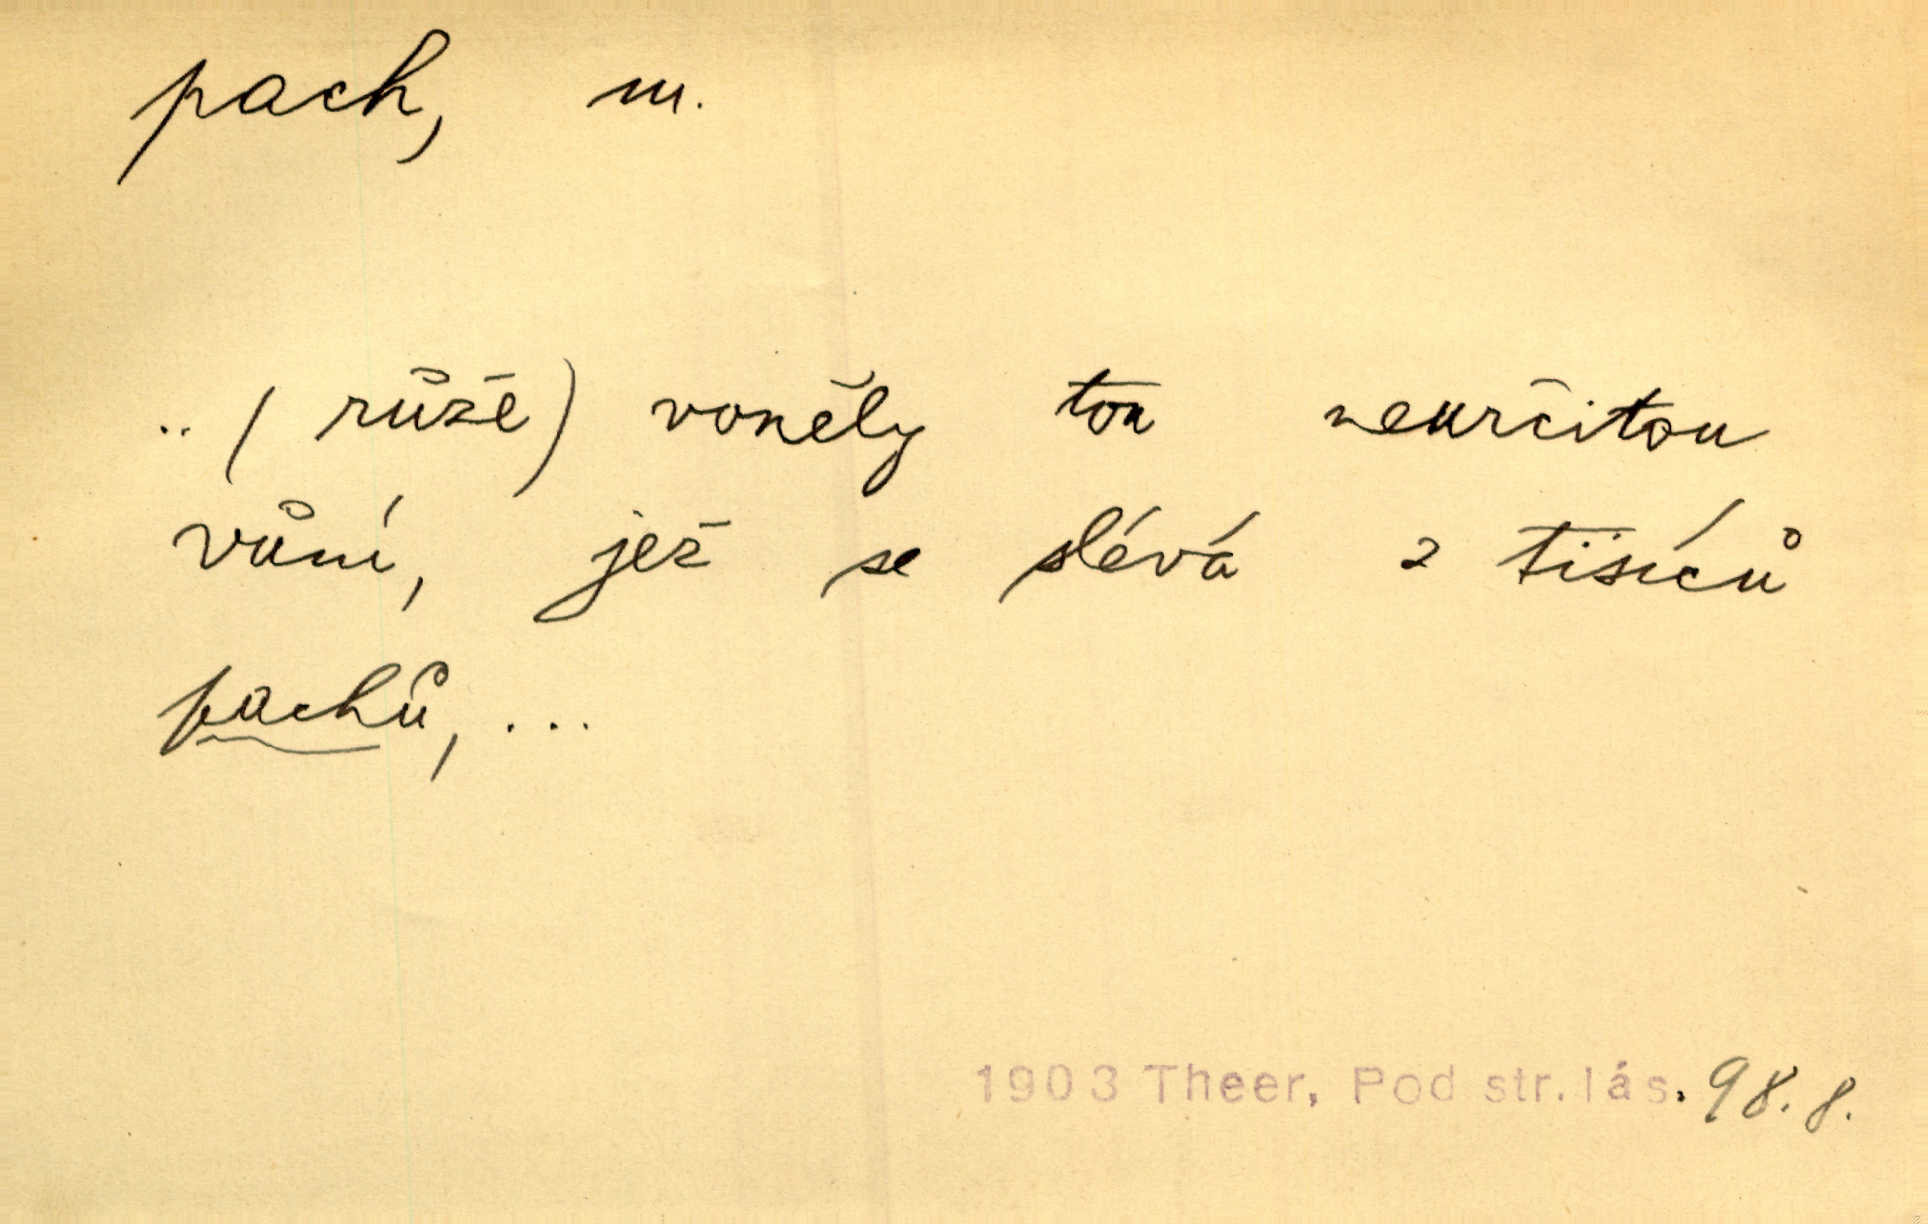 pach, m.
.. (růže) voněly tou neurčitou
vůní, jež se slévá z tisíců
pachů, ...
1903 Theer, Pod str. lás. 98. 8.